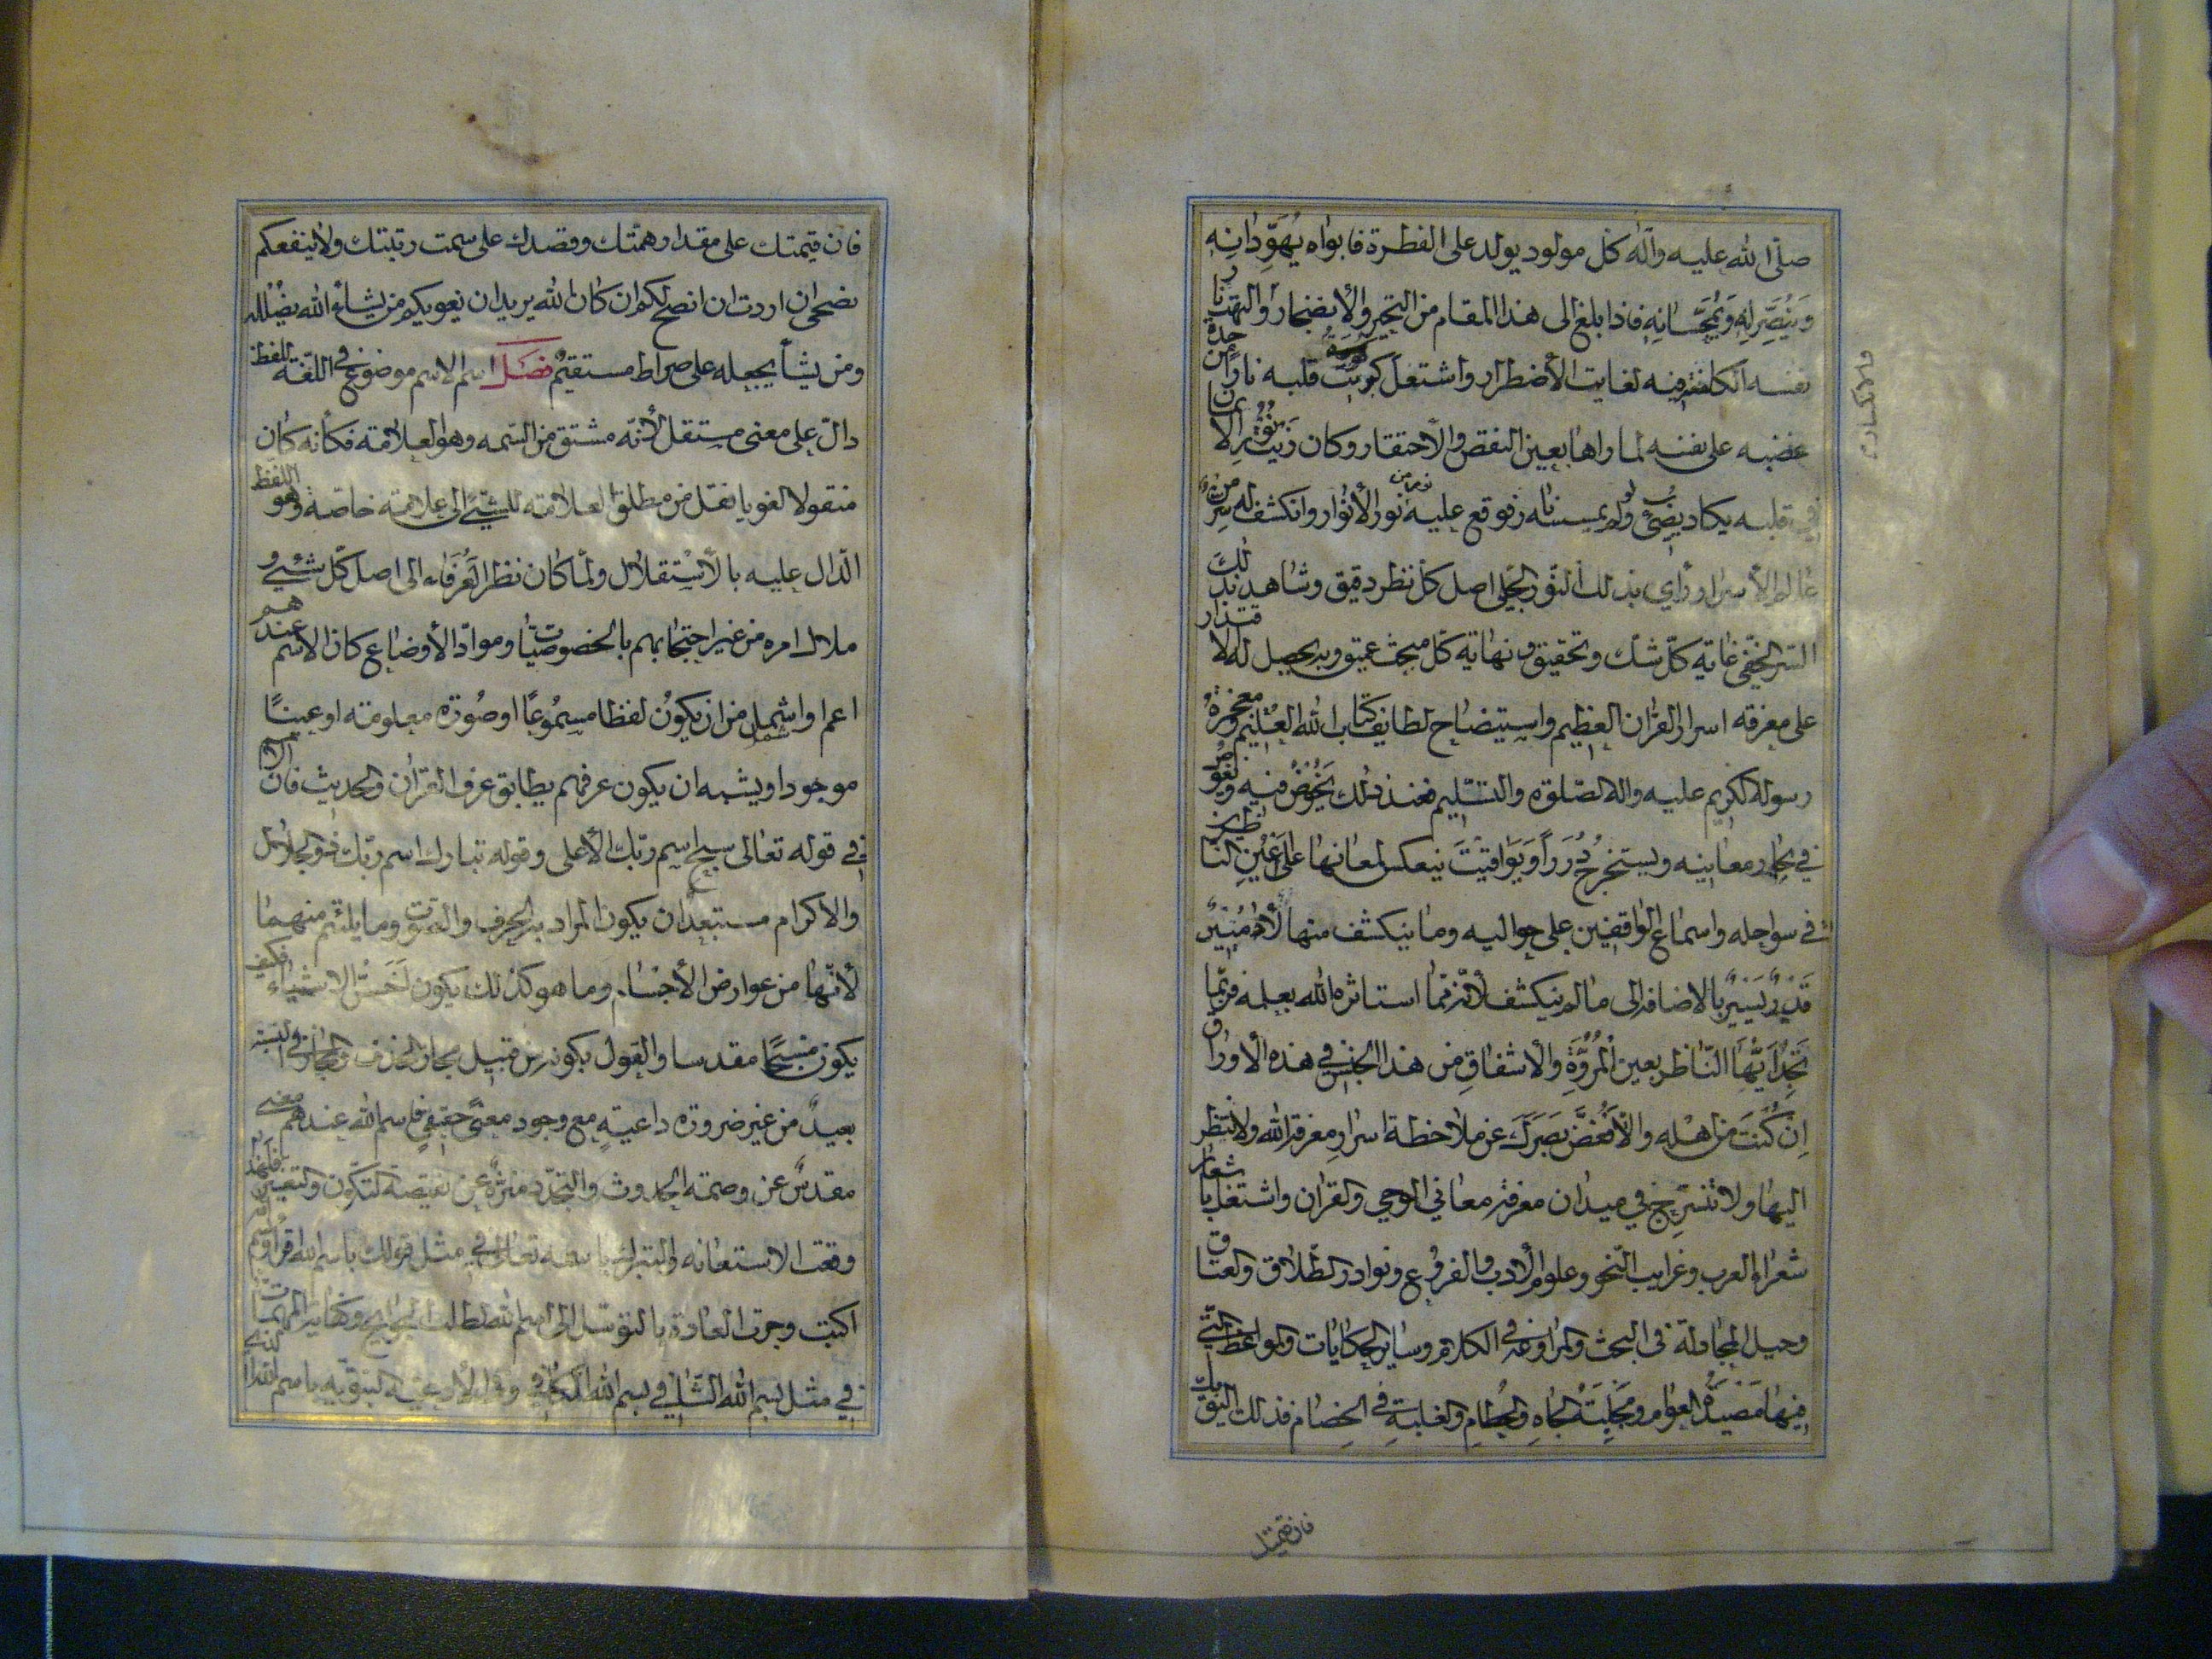 صلّى الله عليه وآله كل مولود يولد على الفطرة فابواه يُهَوِّدانِه
وَيُنَصِّرانِه وَيُمَجِّسَانِهِ فاذا بلغ الى هذا المقام من التحير والأنضجار والتهبت نار
نفسه الكامنة فيه لغاية الأضطرار واشتعل كبريت قلبه نارا من حدة
غضبه على نفسه لما راها بعين النقص والأحتقار وكان زيت نور الايمان
في قلبه يكاد يضئ ولو لم تمسسه نار فوقع عليه نور الأنوار وانكشف له سر من
عالم الأسرار وراى بذلك النّور الجلي اصل كل نظر دقيق وشاهد بذلك
السّر الخفي غاية كلّ شك وتحقيق ونهاية كلّ مبحث عميق وبه يحصل له الاقتدار
على معرفة اسرار القران العظيم واستيضاح لطايف كتاب الله العليم ومعجزة
رسوله الكريم عليه واله الصّلوة والتسّليم فعند ذلك يَخُوضُ فيه ويغوص
في بحار معانيه ويستخرج دُرَراً وَيَوَاقيتَ ينعكس لمعانها على اَعْيُنِ النّاظرين
في سواحله واسماع الواقفين على حواليه وما ينكشف منها للآدميين
قَدْرٌ يَسيرٌ بالاضافة الى ما لم ينكشف لأنّه ممّا استاثره الله بعلمه فربّما
تَجِدُ اَيُّهَا النّاظر بعين الْمُرُوَّةِ والأشفاقِ من هذا الجنس في هذه الأوراق
اِنْ كُنْتَ من اهْلِه والّا فَغُضَّ بَصَرَكَ عن ملاحظة اسرارِ معرفة الله ولا تنظر
اليها ولا تَنْسَرِحْ في ميدان معرفة معاني الوحي والقران واشتغل باشعار
شعراء العرب وغرايب النّحو وعلوم الأدب والفروع ونوادر الطّلاق والعتاق
وحيل المجادلة في البحث والمراوغة في الكلام وساير الحكايات والمواعظ الّتي
فيها مَصْيَدَةُ العوام ومَجْلِبَةُ الجاهِ والحُطامِ والغلبةِ في الخِصام فذلك اليق بك
والانكسار
فان قيمتك
فان قيمتك على مقدار همّتك وقصدك على سمت رتبتك ولا ينفعكم
نصحى ان اردت ان انصح لكم ان كان الله يريد ان يغويكم من يشاء الله يضلله
ومن يشأ يجعله على صراط مستقيم فصل اسم الاسم موضوع في اللّغة للفظ
دالّ على معنى مستقل لأنّه مشتق من السّمة وهو العلامة فكأنه كان
منقولا لغويا نقل من مطلق العلامة للشيئ الى علامة خاصة وهو اللفظ
الّدال عليه بالأسْتقلال ولمّا كان نظر العُرَفاء الى اصل كل شيئ و
ملاك امره من غير احتجابهم بالخصوصيّات وموادّ الأوضاع كان الاسم عندهم
اعم واشمل من ان يكون لفظا مسموعًا او صُورة معلومة او عينًا
موجودا ويشبه ان يكون عرفهم يطابق عرف القرأن والحديث فان الاسم
في قوله تعالى سبح اسم ربك الأعلى وقوله تبارك اسم ربّك ذو الجلال
والاكرام مستبعد ان يكون المراد به الحرف والصوت وما يلتئم منهما
لأنّها من عوارض الأجسام وما هو كذلك يكون اَخَسُّ الاشياء فكيف
يكون مُسَبَّحًا مقدسا والقول بكونه من قبيل مجاز الحذف والمجاز في النّسبة
بعيدٌ من غير ضرورة داعيةٍ مع وجود معنًى حقيقي فاسم الله عندهم معنى
مقدسٌ عن وصمة الحدوث والتجدّد منزهٌ عن نقيصة التكّون والتغيير فلهذا
وقعت الاستعانة والتبرك باسمه تعالى في مثل قولك باسم الله اقرأ وباسم الله
اكتب وجرت العادة بالتوسّل الى اسم الله لطلب الحوايج وكفاية المهمّات
في مثل بسم الله الشّافي بسم الله الكافي وفي الأدعية النبويّه باسم الله الذي